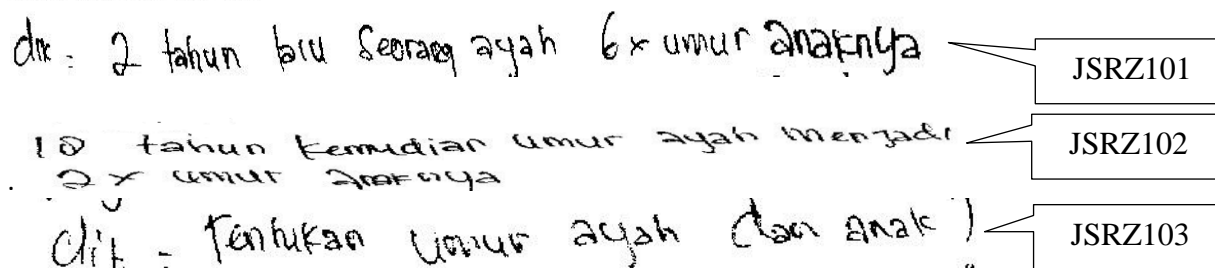 dik : 2 tahun lalu Seorang ayah 6x umur anaknya
JSRZ101
10 tahun kemudian umur ayah menjadi
JSRZ102
2x umur anaknya
dit = Tentukan umur ayah dan anak !
JSRZ103